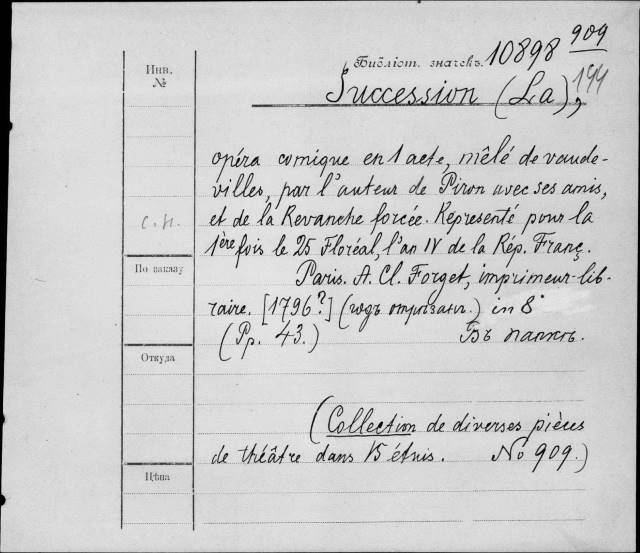 Библіот. значекъ. 10898 909
Инв. №
Succession (La), 144
opéra comique en 1 acte, mêlé de vaude-
villes, par l'auteur de Piron avec ses amis,
с.п.
et de la Revanche forcée. Représenté pour la
1ère fois le 25 Floréal, l'an IV de la Rép. Franç.
По заказу
Paris. A. Cl. Forget, imprimeur-lib-
raire. [1796?] (годъ отрѣзанъ.) in 8°
(Pp. 43.) Въ папкѣ.
Откуда
(Collection de diverses pièces
de théâtre dans 15 étuis. No 909.)
Цѣна